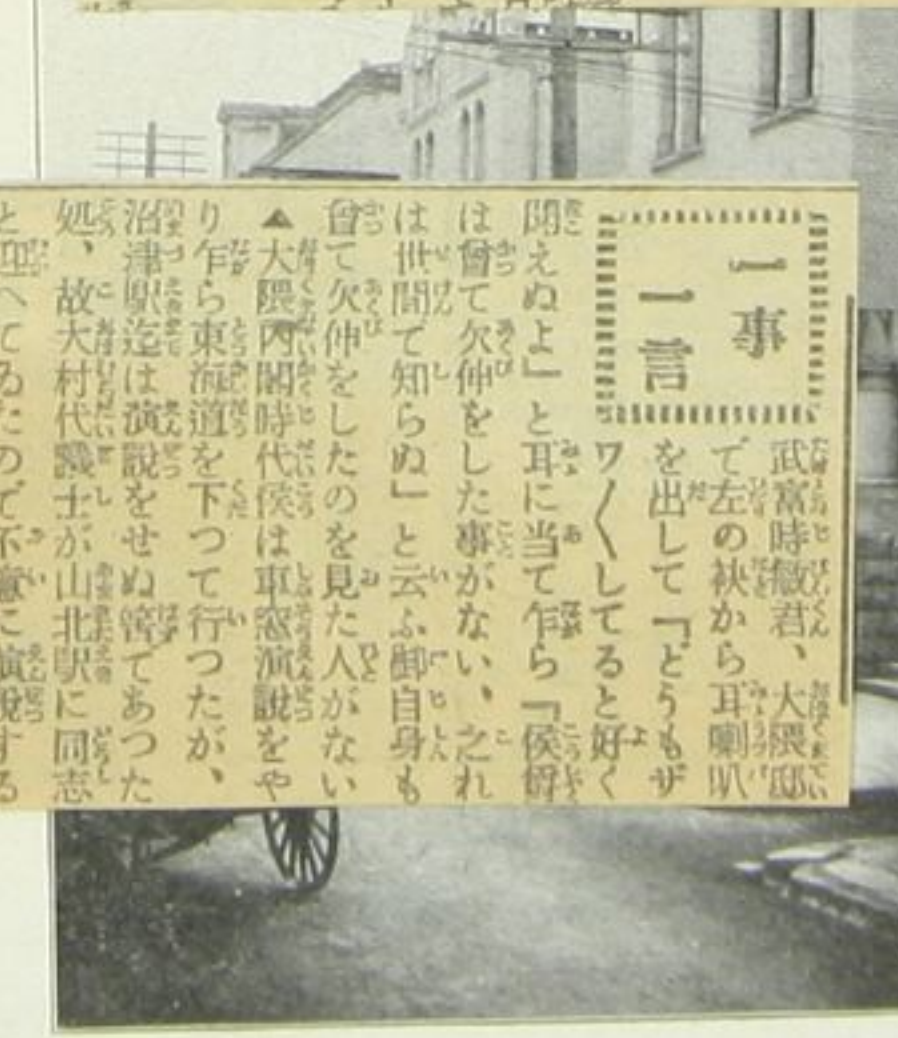 一事
一言
武富時敏君、大隈邸
で左の袂から耳喇叭
を出して『どうもザ
ワ〳〵してると好く
聞えぬよ』と耳に当て乍ら『侯爵
は曾て欠伸をした事がない、之れ
は世間で知らぬ』と云ふ御自身も
曾て欠伸をしたのを見た人がない
▲大隈内閣時代侯は車窓演説をや
り乍ら東海道を下つて行つたが、
沼津駅迄は演説をせぬ筈であつた
処、故大村代議士が山北駅に同志
と迎へてゐたので不意に演説する